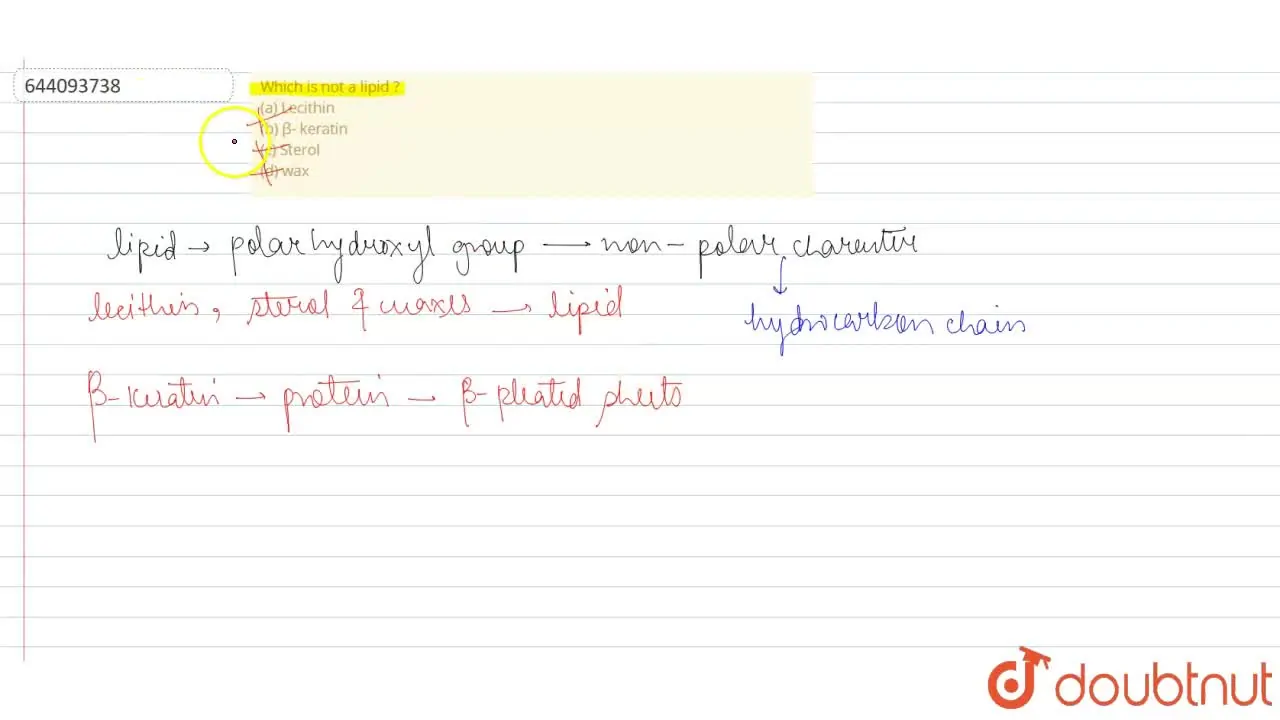 644093738
Which is not a lipid ?
(a) Lecithin
(b) β- keratin
(c) Sterol
(d) wax
lipid → polar hydroxyl group → non-polar
lecithin, sterol & waxes → lipid
hydrocarbon chain
β-keratin → protein → β-pleated sheets
doubtnut